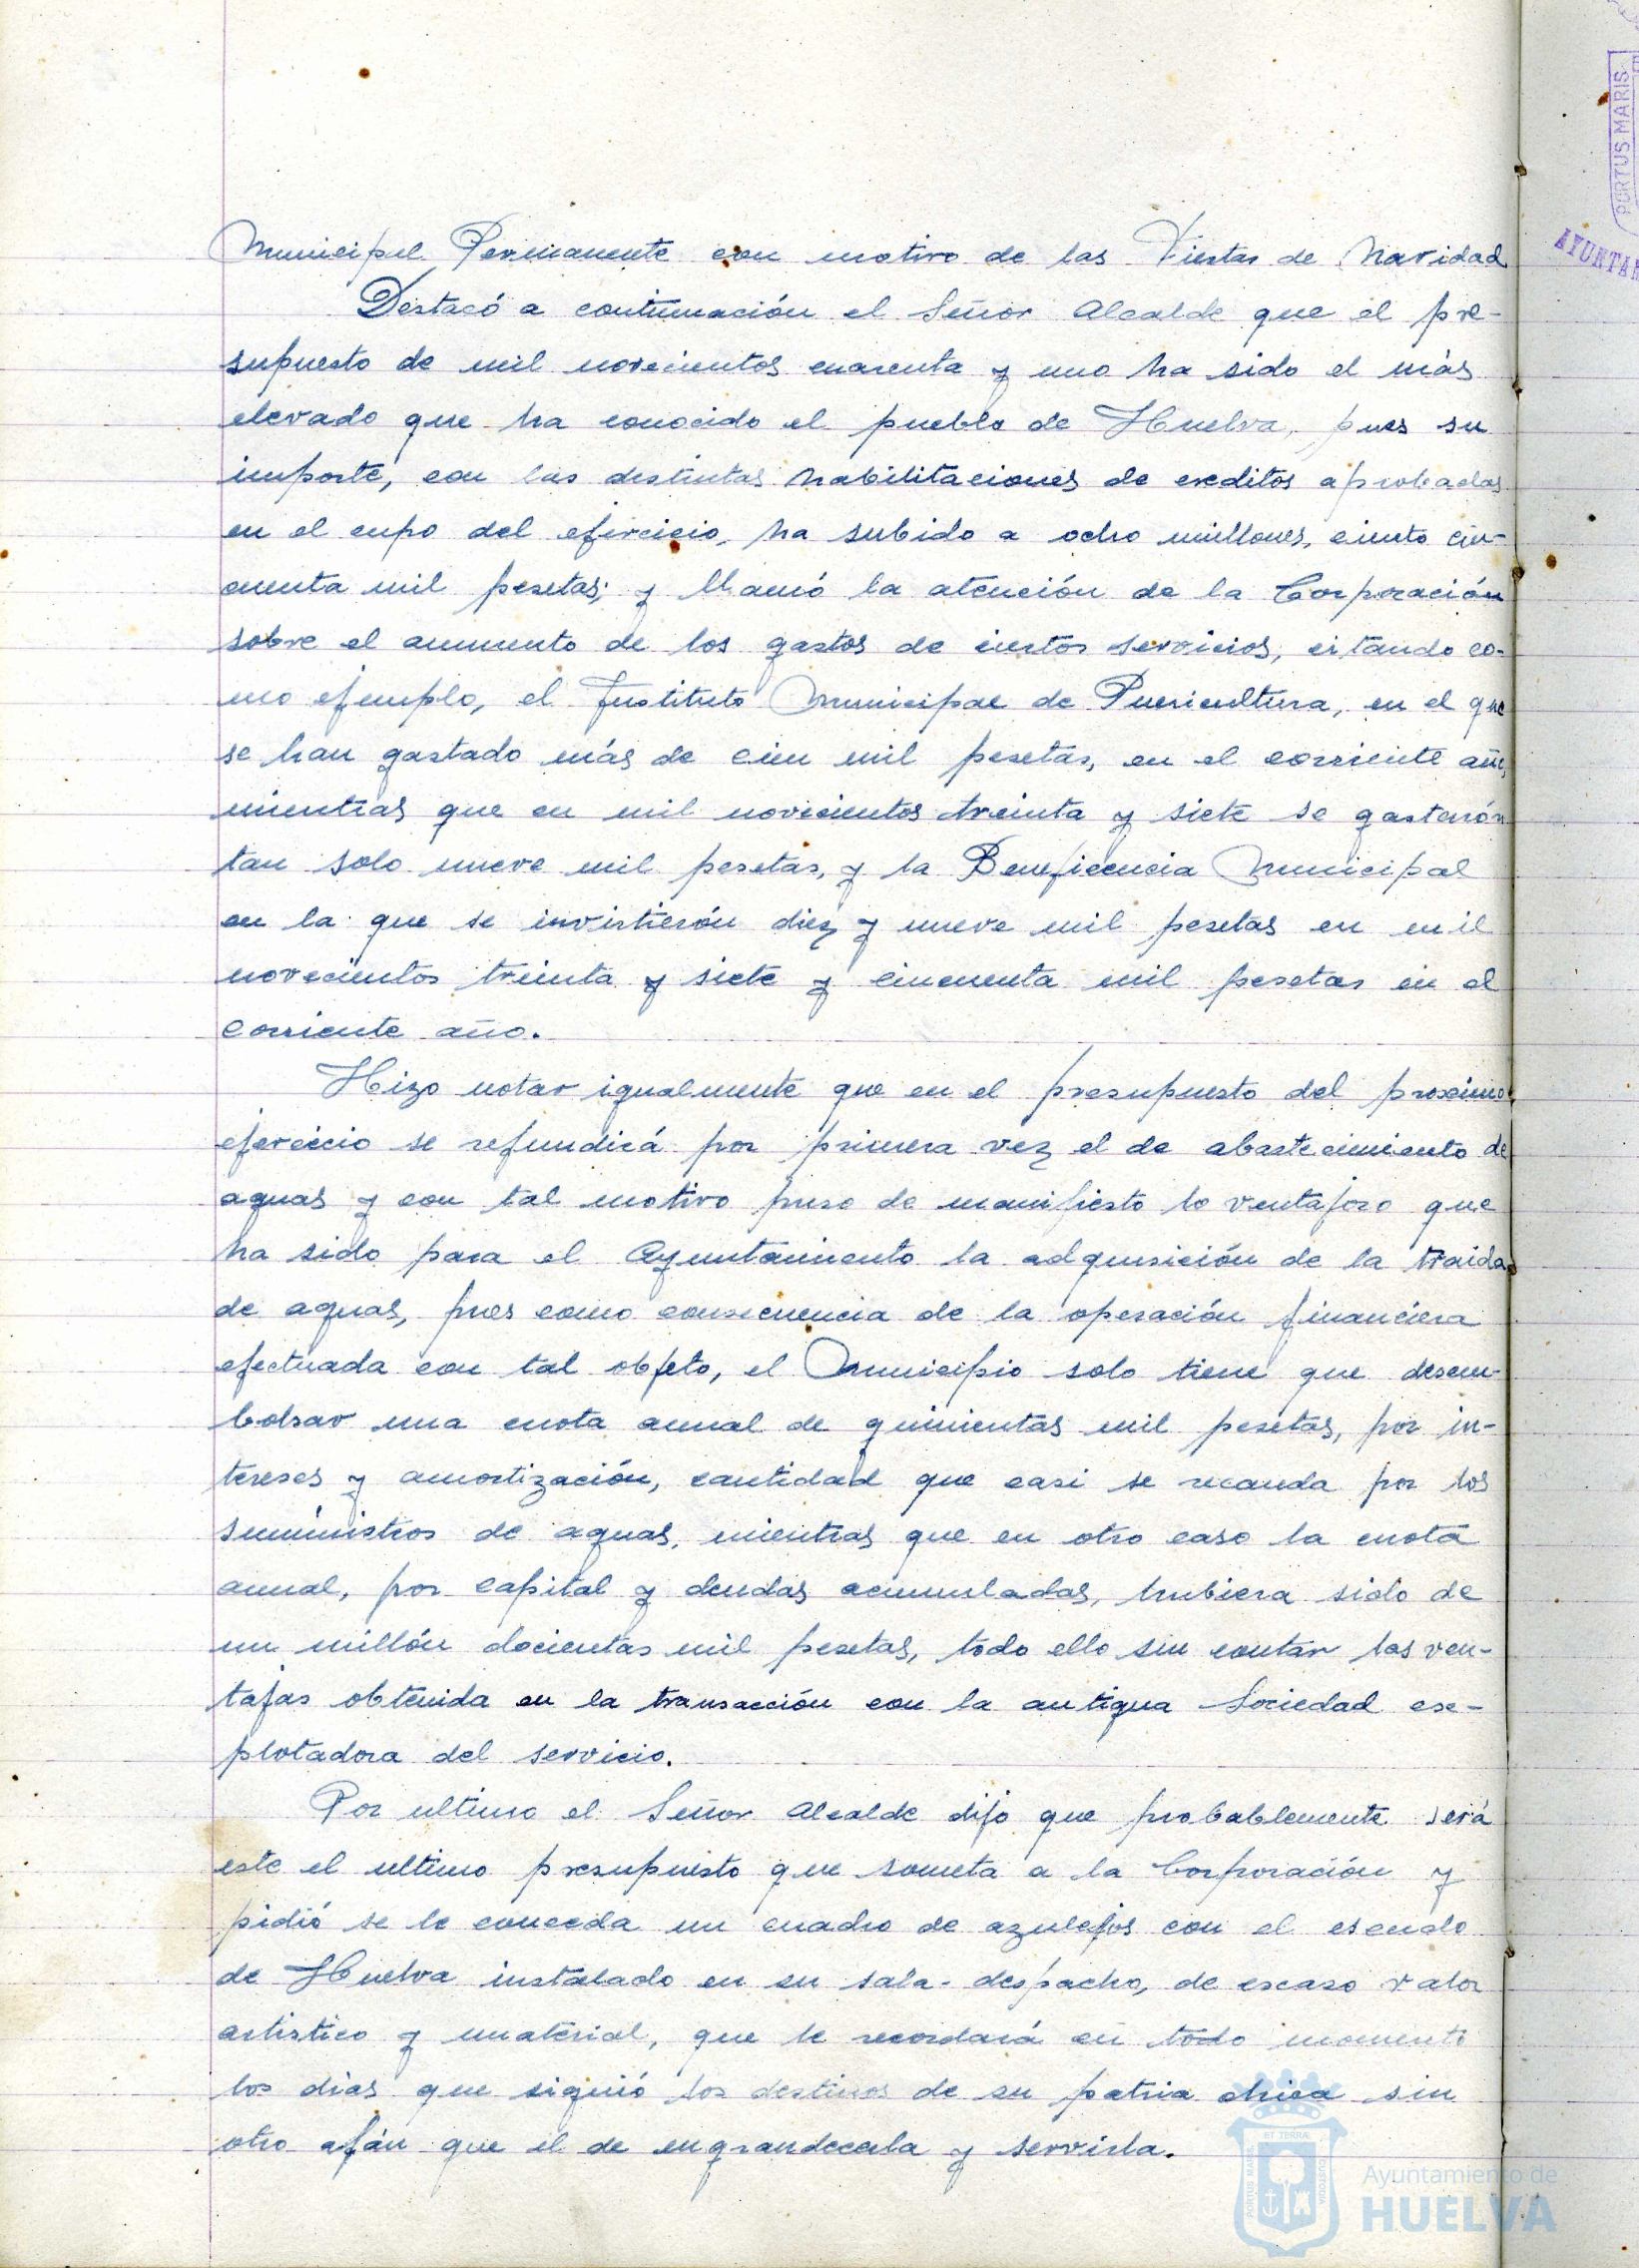 Municipal Permanente con motivo de las Fiestas de Navidad
Destacó a continuación el Señor Alcalde que el pre-
supuesto de mil novecientos cuarenta y uno ha sido el más
elevado que ha conocido el pueblo de Huelva, pues su
importe, con las distintas habilitaciones de creditos aprobadas
en el cupo del ejercicio, ha subido a ocho millones, ciento cin-
cuenta mil pesetas; y llamó la atención de la Corporación
sobre el aumento de los gastos de ciertos servicios, citando co-
mo ejemplo, el Instituto Municipal de Puericultura, en el que
se han gastado más de cien mil pesetas, en el corriente año,
mientras que en mil novecientos treinta y siete se gastarón
tan solo nueve mil pesetas, y la Beneficencia Municipal
en la que se invirtierón diez y nueve mil pesetas en mil
novecientos treinta y siete y cincuenta mil pesetas en el
corriente año.
Hizo notar igualmente que en el presupuesto del proximo
ejercicio se refundirá por primera vez el de abastecimiento de
aguas y con tal motivo puso de manifiesto lo ventajoso que
ha sido para el Ayuntamiento la adquisición de la traida
de aguas, pues como consecuencia de la operación financiera
efectuada con tal objeto, el Municipio solo tiene que desem-
bolsar una cuota anual de quinientas mil pesetas, por in-
tereses y amortización, cantidad que casi se recauda por los
suministros de aguas, mientras que en otro caso la cuota
anual, por capital y deudas acumuladas, hubiera sido de
un millón docientas mil pesetas, todo ello sin contar las ven-
tajas obtenida en la transacción con la antigua Sociedad ex-
plotadora del servicio.
Por ultimo el Señor Alcalde dijo que probablemente será
este el ultimo presupuesto que someta a la Corporación y
pidió se le conceda un cuadro de azulejos con el escudo
de Huelva instalado en su sala-despacho, de escaso valor
artistico y material, que le recordará en todo momento
los dias que siguió los destinos de su patria chica sin
otro afán que el de engrandecerla y servirla.
PORTUS MARIS
AYUNTAM
ET TERRAE
PORTUS MARIS
CUSTODIA
Ayuntamiento de
HUELVA